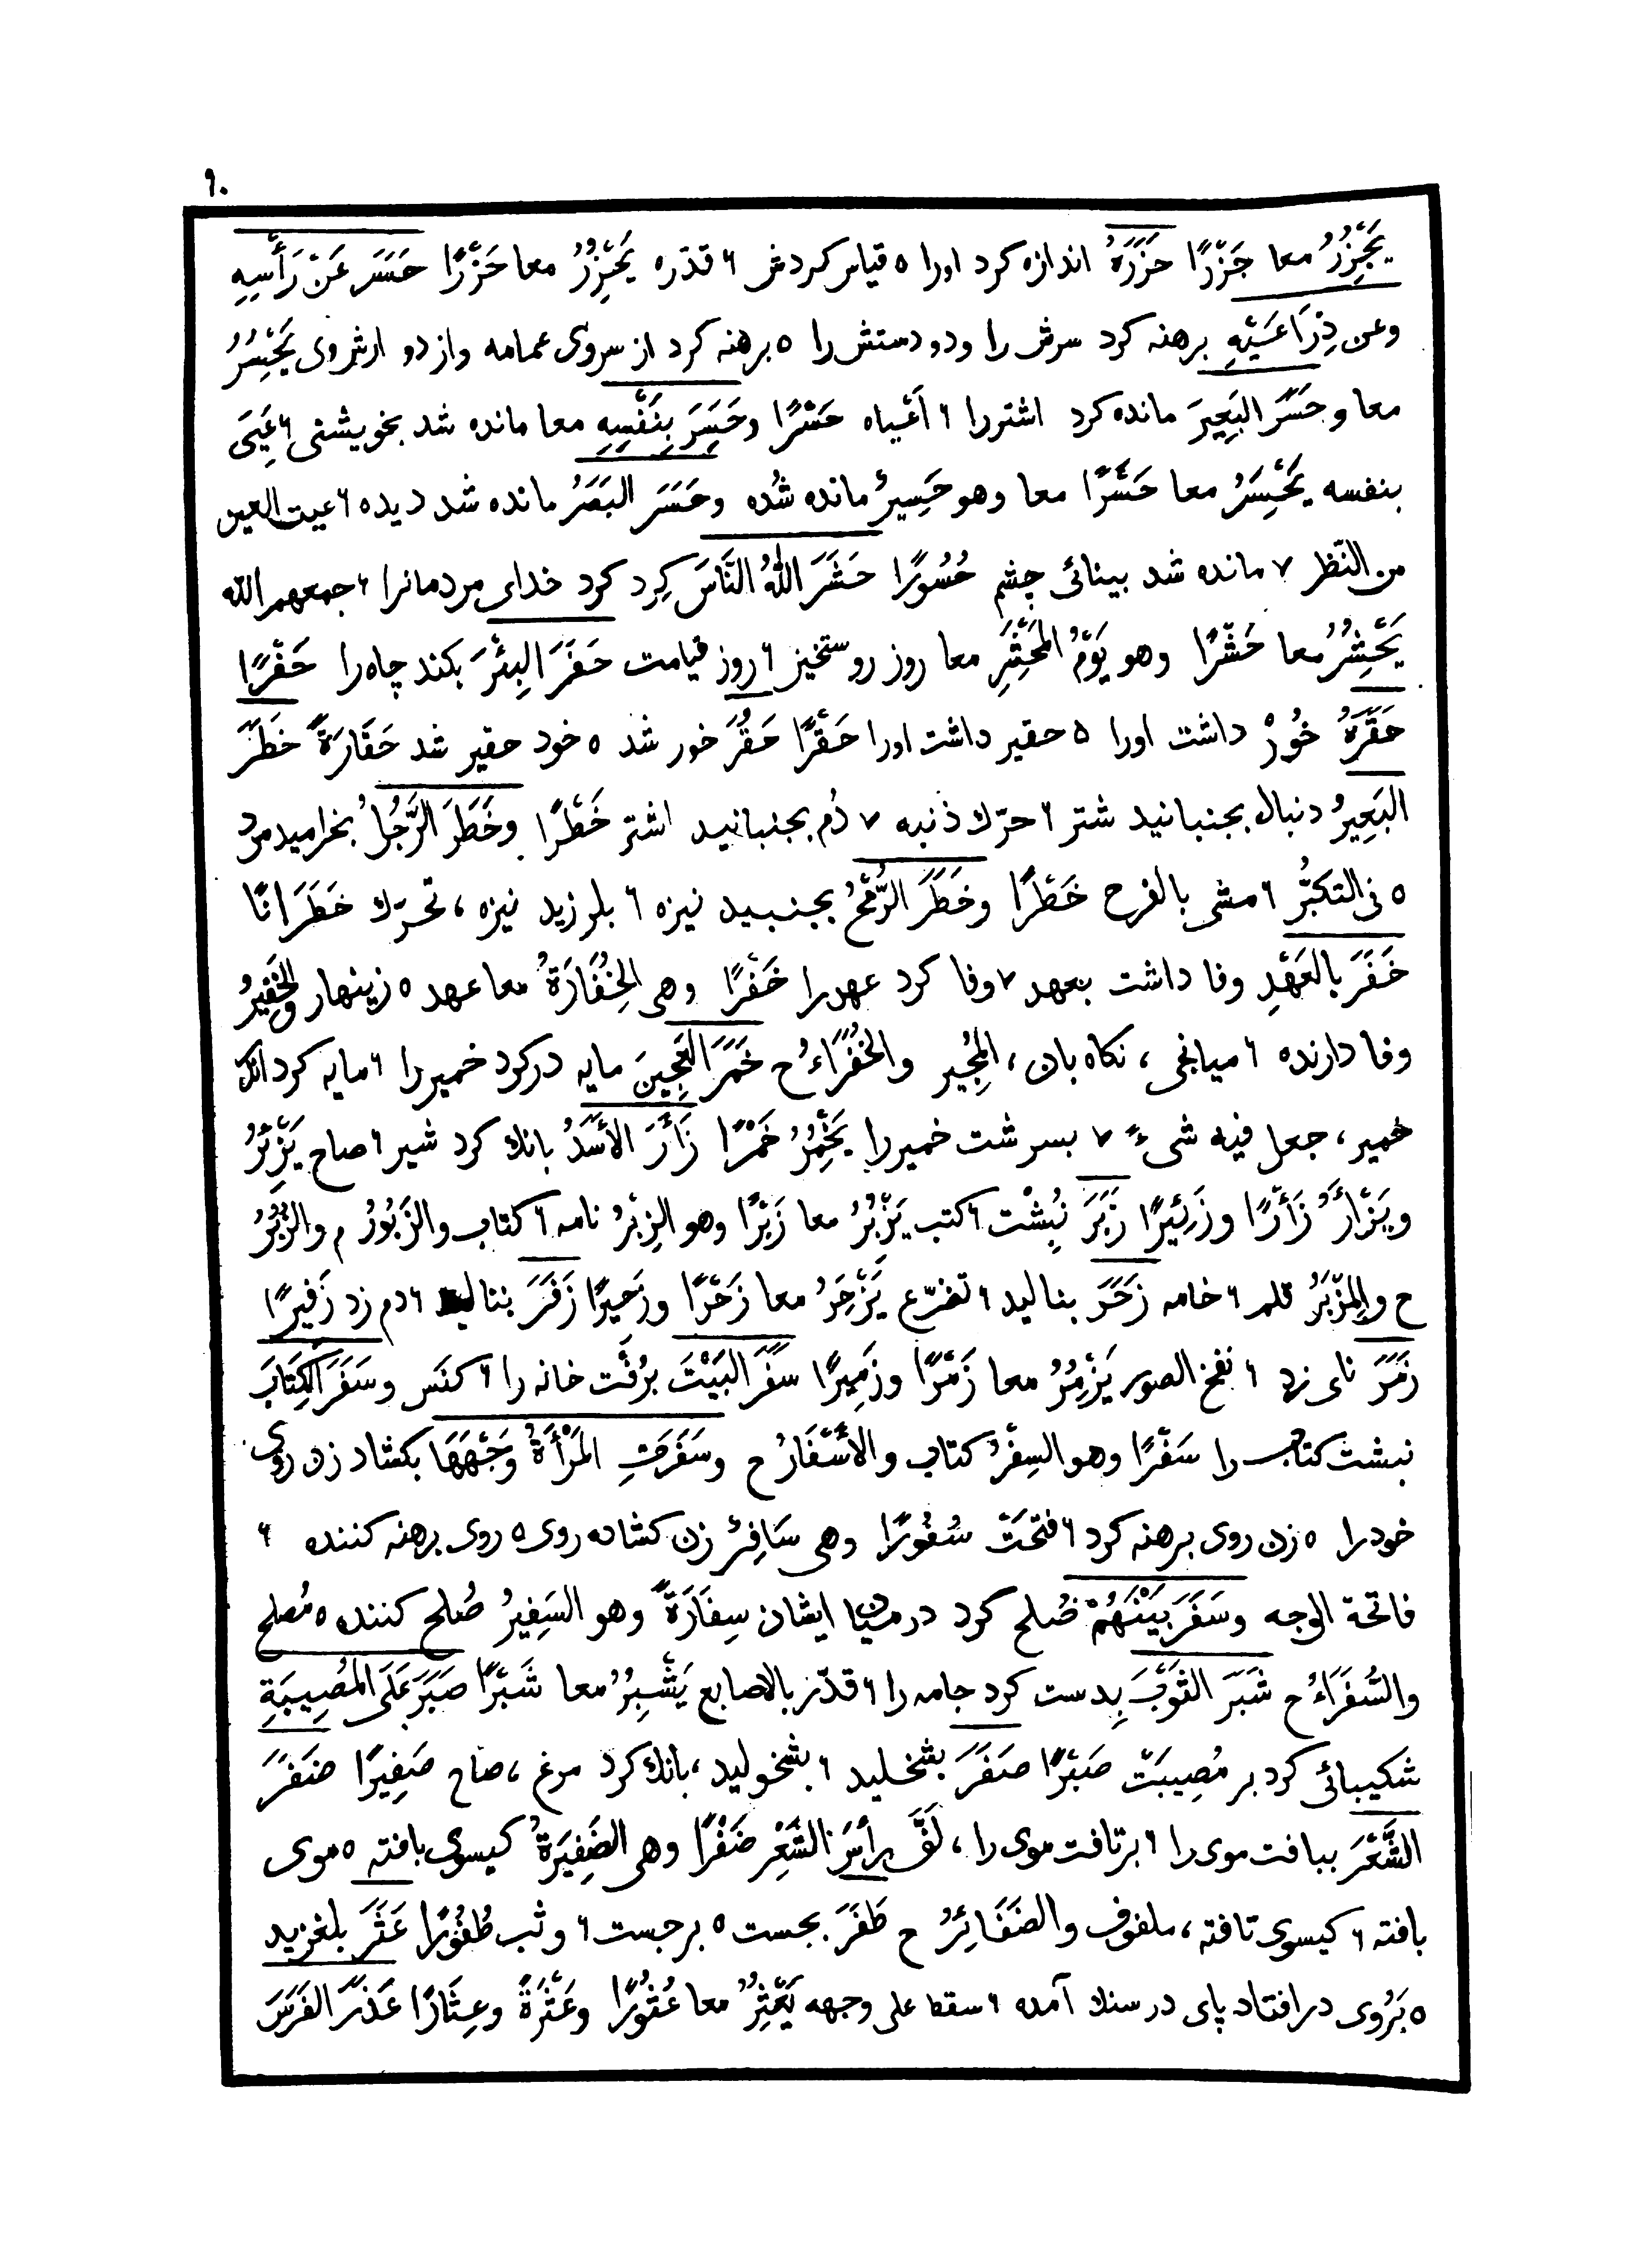 ٩٠
يَجْزِرُ معا جَزْرًا حَزَرَهُ اندازه كرد اورا ٥ قياس كردش ٦ قدّره يَحْزِرُ معا حَزْرًا حَسَرَ عَنْ رَأْسِهِ
وعن ذِرَاعَيْهِ برهنه كرد سرش را ودو دستش را ٥ برهنه كرد از سروى عمامه واز دو ارش وى يَحْسِرُ
معا وحَسَرَ البَعِيرَ مانده كرد اشتر را ٦ أَعْياه حَسْرًا وحَسِرَ بِنَفْسِهِ معا مانده شد بخويشتن ٦ عَيِىَ
بنفسه يَحْسِرُ معا حَسْرًا معا وهو حَسِيرٌ مانده شُده وحَسَرَ البَصَرُ مانده شد ديده ٦ عيت العين
من النّظر ٧ مانده شد بينائى چشم حُسُورًا حَشَرَ اللّٰهُ النَّاسَ كِرد كرد خداى مردمانرا ٦ جمعهم الله
يَحْشِرُ معا حَشْرًا وهو يَوْمُ المَحْشَرِ معا روز روستخيز ٦ روز قيامت حَفَرَ البِئْرَ بكند چاه را حَفْرًا
حَقَرَهُ خُوْر داشت اورا ٥ حقير داشت اورا حَقْرًا حَقُرَ خور شد ٥ خود حقير شد حَقَارَةً خَطَرَ
البَعِيرُ دنبال بجنبانيد شتر ٦ حرّك ذنبه ٧ دُم بجنبانيد اشتر خَطْرًا وخَطَرَ الرَّجُلُ بخراميد مرد
٥ فى التكبُّر ٦ مشى بالفرح خَطْرًا وخَطَرَ الرُّمْحُ بجنبيد نيزه ٦ بلرزيد نيزه ، تحرّك خَطَرَانًا
خَفَرَ بِالعَهْدِ وفا داشت بعهد ٧ وفا كرد عهد را خَفْرًا وهى الخِفَارَةُ معا عهد ٥ زينهار والخَفِيرُ
وفا دارنده ٦ ميانجى ، نكاه بان ، المُجير والخُفَرَاءُ ح خَمَرَ العَجِينَ مايه در كرد خمير را ٦ مايه كرد اندر
خمير ، جعل فيه شىءٌ ٧ بسر شت خمير را يَخْمِرُ خَمْرًا زَأَرَ الأَسَدُ بانك كرد شير ٦ صاح يَزْئِرُ
ويَزْأَرُ زَأْرًا وزَئِيرًا زَبَرَ نِبِشْت ٦ كتب يَزْبُرُ معا زَبْرًا وهو الزِبْرُ نامه ٦ كتاب والزَبُورُ م والزُبُرُ
ح والمِزْبَرُ قلم ٦ خامه زَحَرَ بناليد ٦ تضرّع يَزْحِرُ معا زَحْرًا وزَحِيرًا زَفَرَ بناليد ٦ دم زد زَفِيرًا
زَمَرَ ناى زد ٦ نفخ الصور يَزْمِرُ معا زَمْرًا وزَمِيرًا سَفَرَ البَيْتَ برُفْت خانه را ٦ كنَس وسَفَرَ الكِتَابَ
نبشت كتاب را سَفْرًا وهو السِفْرُ كتاب والأَسْفَارُ ح وسَفَرَتِ المَرْأَةُ وَجْهَهَا بكشاد زن روى
خود را ٥ زن روى برهنه كرد ٦ فتحَتْ سُفُورًا وهى سَافِرٌ زن كشاده روى ٥ روى برهنه كننده ٦
فاتحة الوجه وسَفَرَ بَيْنَهُمْ صُلح كرد در ميان ايشان سِفَارَةً وهو السَفِيرُ صُلح كننده ٥ مُصلح
والسُّفَرَاءُ ح شَبَرَ الثَوْبَ بِدست كرد جامه را ٦ قدّر بالاصابع يَشْبِرُ معا شَبْرًا صَبَرَ عَلَى المُصِيبَةِ
شكيبائى كرد بر مُصِيبَتْ صَبْرًا صَفَرَ بشخليد ٦ بشخوليد ، بانك كرد مرغ ، صاح صَفِيرًا ضَفَرَ
الشَّعْرَ ببافت موى را ٦ برتافت موى را ، لَفَّ رأسَ الشَعْرِ ضَفْرًا وهى الضَفِيرَةُ كيسوى بافته ٥ موى
بافته ٦ كيسوى تافته ، ملفوف والضَفَائِرُ ح طَفَرَ بجست ٥ برجست ٦ وثب طُفُورًا عَثَرَ بلغزيد
٥ بَرُوى در افتاد پاى در سنك آمده ٦ سقط على وجهه يَعْثِرُ معا عُثُورًا وعَثْرَةً وعِثَارًا عَذَرَ الفَرَسَ